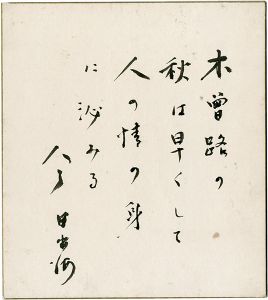 木曽路の
秋は早くして
人の情の身
に沁みる